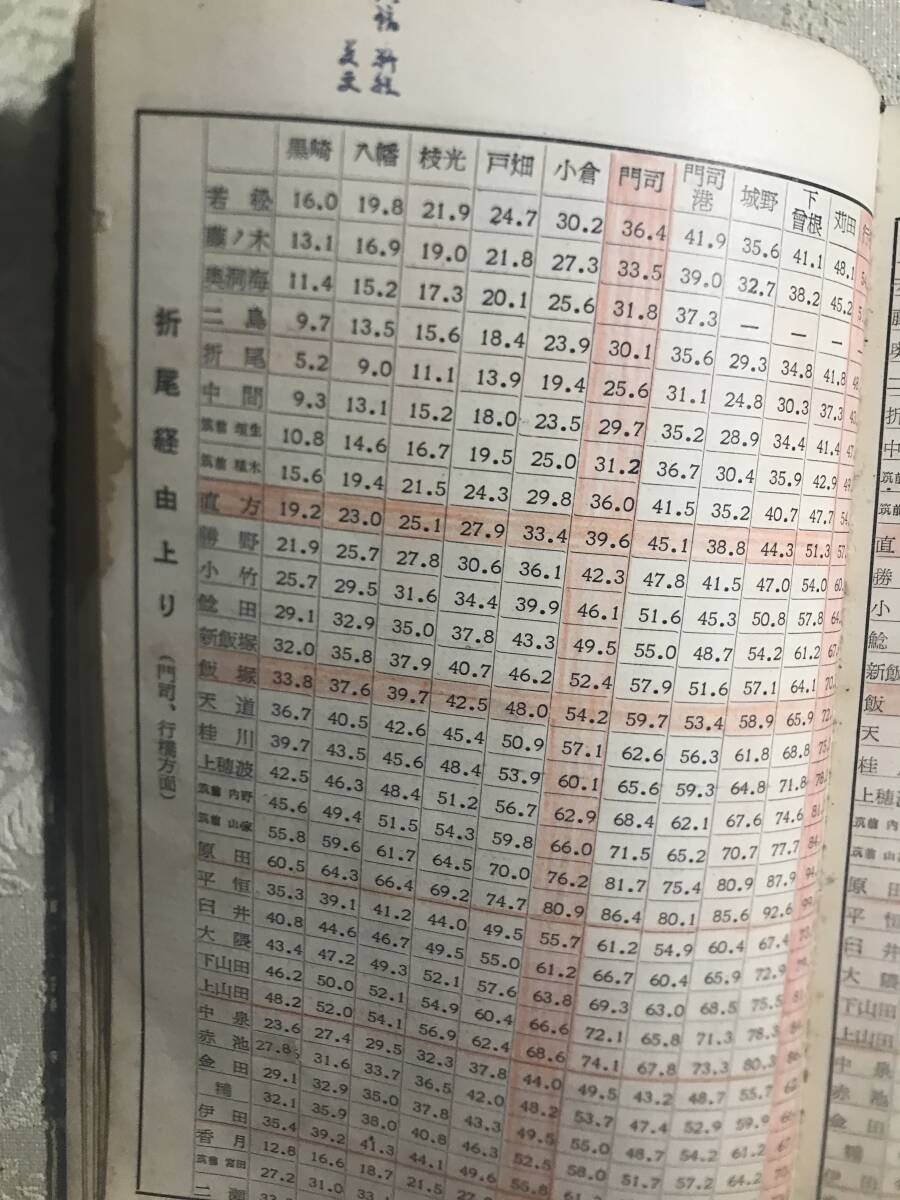 折尾経由上り（門司、行橋方面）
黒崎 八幡 枝光 戸畑 小倉 門司 門司港 城野 下曾根 苅田 行
若松 16.0 19.8 21.9 24.7 30.2 36.4 41.9 35.6 41.1 48.1
藤ノ木 13.1 16.9 19.0 21.8 27.3 33.5 39.0 32.7 38.2 45.2
奥洞海 11.4 15.2 17.3 20.1 25.6 31.8 37.3 — — —
二島 9.7 13.5 15.6 18.4 23.9 30.1 35.6 29.3 34.8 41.8
折尾 5.2 9.0 11.1 13.9 19.4 25.6 31.1 24.8 30.3 37.3
中間 9.3 13.1 15.2 18.0 23.5 29.7 35.2 28.9 34.4 41.4
筑前垣生 10.8 14.6 16.7 19.5 25.0 31.2 36.7 30.4 35.9 42.9
筑前植木 15.6 19.4 21.5 24.3 29.8 36.0 41.5 35.2 40.7 47.7
直方 19.2 23.0 25.1 27.9 33.4 39.6 45.1 38.8 44.3 51.3
勝野 21.9 25.7 27.8 30.6 36.1 42.3 47.8 41.5 47.0 54.0
小竹 25.7 29.5 31.6 34.4 39.9 46.1 51.6 45.3 50.8 57.8
鯰田 29.1 32.9 35.0 37.8 43.3 49.5 55.0 48.7 54.2 61.2
新飯塚 32.0 35.8 37.9 40.7 46.2 52.4 57.9 51.6 57.1 64.1
飯塚 33.8 37.6 39.7 42.5 48.0 54.2 59.7 53.4 58.9 65.9
天道 36.7 40.5 42.6 45.4 50.9 57.1 62.6 56.3 61.8 68.8
桂川 39.7 43.5 45.6 48.4 53.9 60.1 65.6 59.3 64.8 71.8
上穂波 42.5 46.3 48.4 51.2 56.7 62.9 68.4 62.1 67.6 74.6
筑前内野 45.6 49.4 51.5 54.3 59.8 66.0 71.5 65.2 70.7 77.7
筑前山家 55.8 59.6 61.7 64.5 70.0 76.2 81.7 75.4 80.9 87.9
原田 60.5 64.3 66.4 69.2 74.7 80.9 86.4 80.1 85.6 92.6
平恒 35.3 39.1 41.2 44.0 49.5 55.7 61.2 54.9 60.4 67.4
臼井 40.8 44.6 46.7 49.5 55.0 61.2 66.7 60.4 65.9 72.9
大隈 43.4 47.2 49.3 52.1 57.6 63.8 69.3 63.0 68.5 75.5
下山田 46.2 50.0 52.1 54.9 60.4 66.6 72.1 65.8 71.3 78.3
上山田 48.2 52.0 54.1 56.9 62.4 68.6 74.1 67.8 73.3 80.3
中泉 23.6 27.4 29.5 32.3 37.8 44.0 49.5 43.2 48.7 55.7
赤池 27.8 31.6 33.7 36.5 42.0 48.2 53.7 47.4 52.9 59.9
金田 29.1 32.9 35.0 37.8 43.3 49.5 55.0 48.7 54.2 61.2
糒 32.1 35.9 38.0 40.8 46.3 52.5 58.0 51.7 57.2 64.2
伊田 35.4 39.2 41.3 44.1 49.6 55.8
香月 12.8 16.6 18.7 21.5
筑前宮田 27.2 31.0 33.1
二瀬
折
中
直
勝
小
鯰
新飯
飯
天
桂
上穂波
筑前内
筑前山
原田
平恒
臼井
大隈
下山田
上山田
中泉
赤池
金田
糒